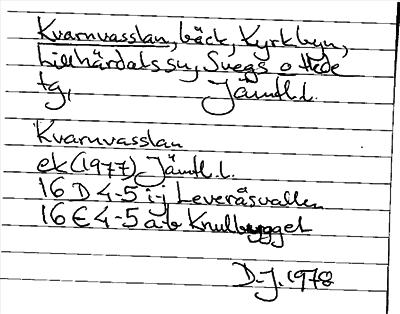 Kvarnvasslan, bäck, Kyrkbyn,
Lillhärdals sn, Svegs o Hede
tg, Jämtl.l.
Kvarnvasslan
ek (1977) Jämtl.l.
16 D 4-5 i-j Leveråsvallen
16 E 4-5 a-b Knulbygget
D.J. 1978